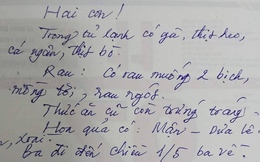 Hai con!
Trong tủ lạnh có gà, thịt heo,
cá ngừ, thịt bò.
Rau: Có rau muống 2 bịch,
mồng tơi, rau ngót.
Thức ăn cũ còn trứng tráng -
Hoa quả có: Mận - Dưa lê -
, xoài.
Ba đi đến chiều 1/5 ba về.